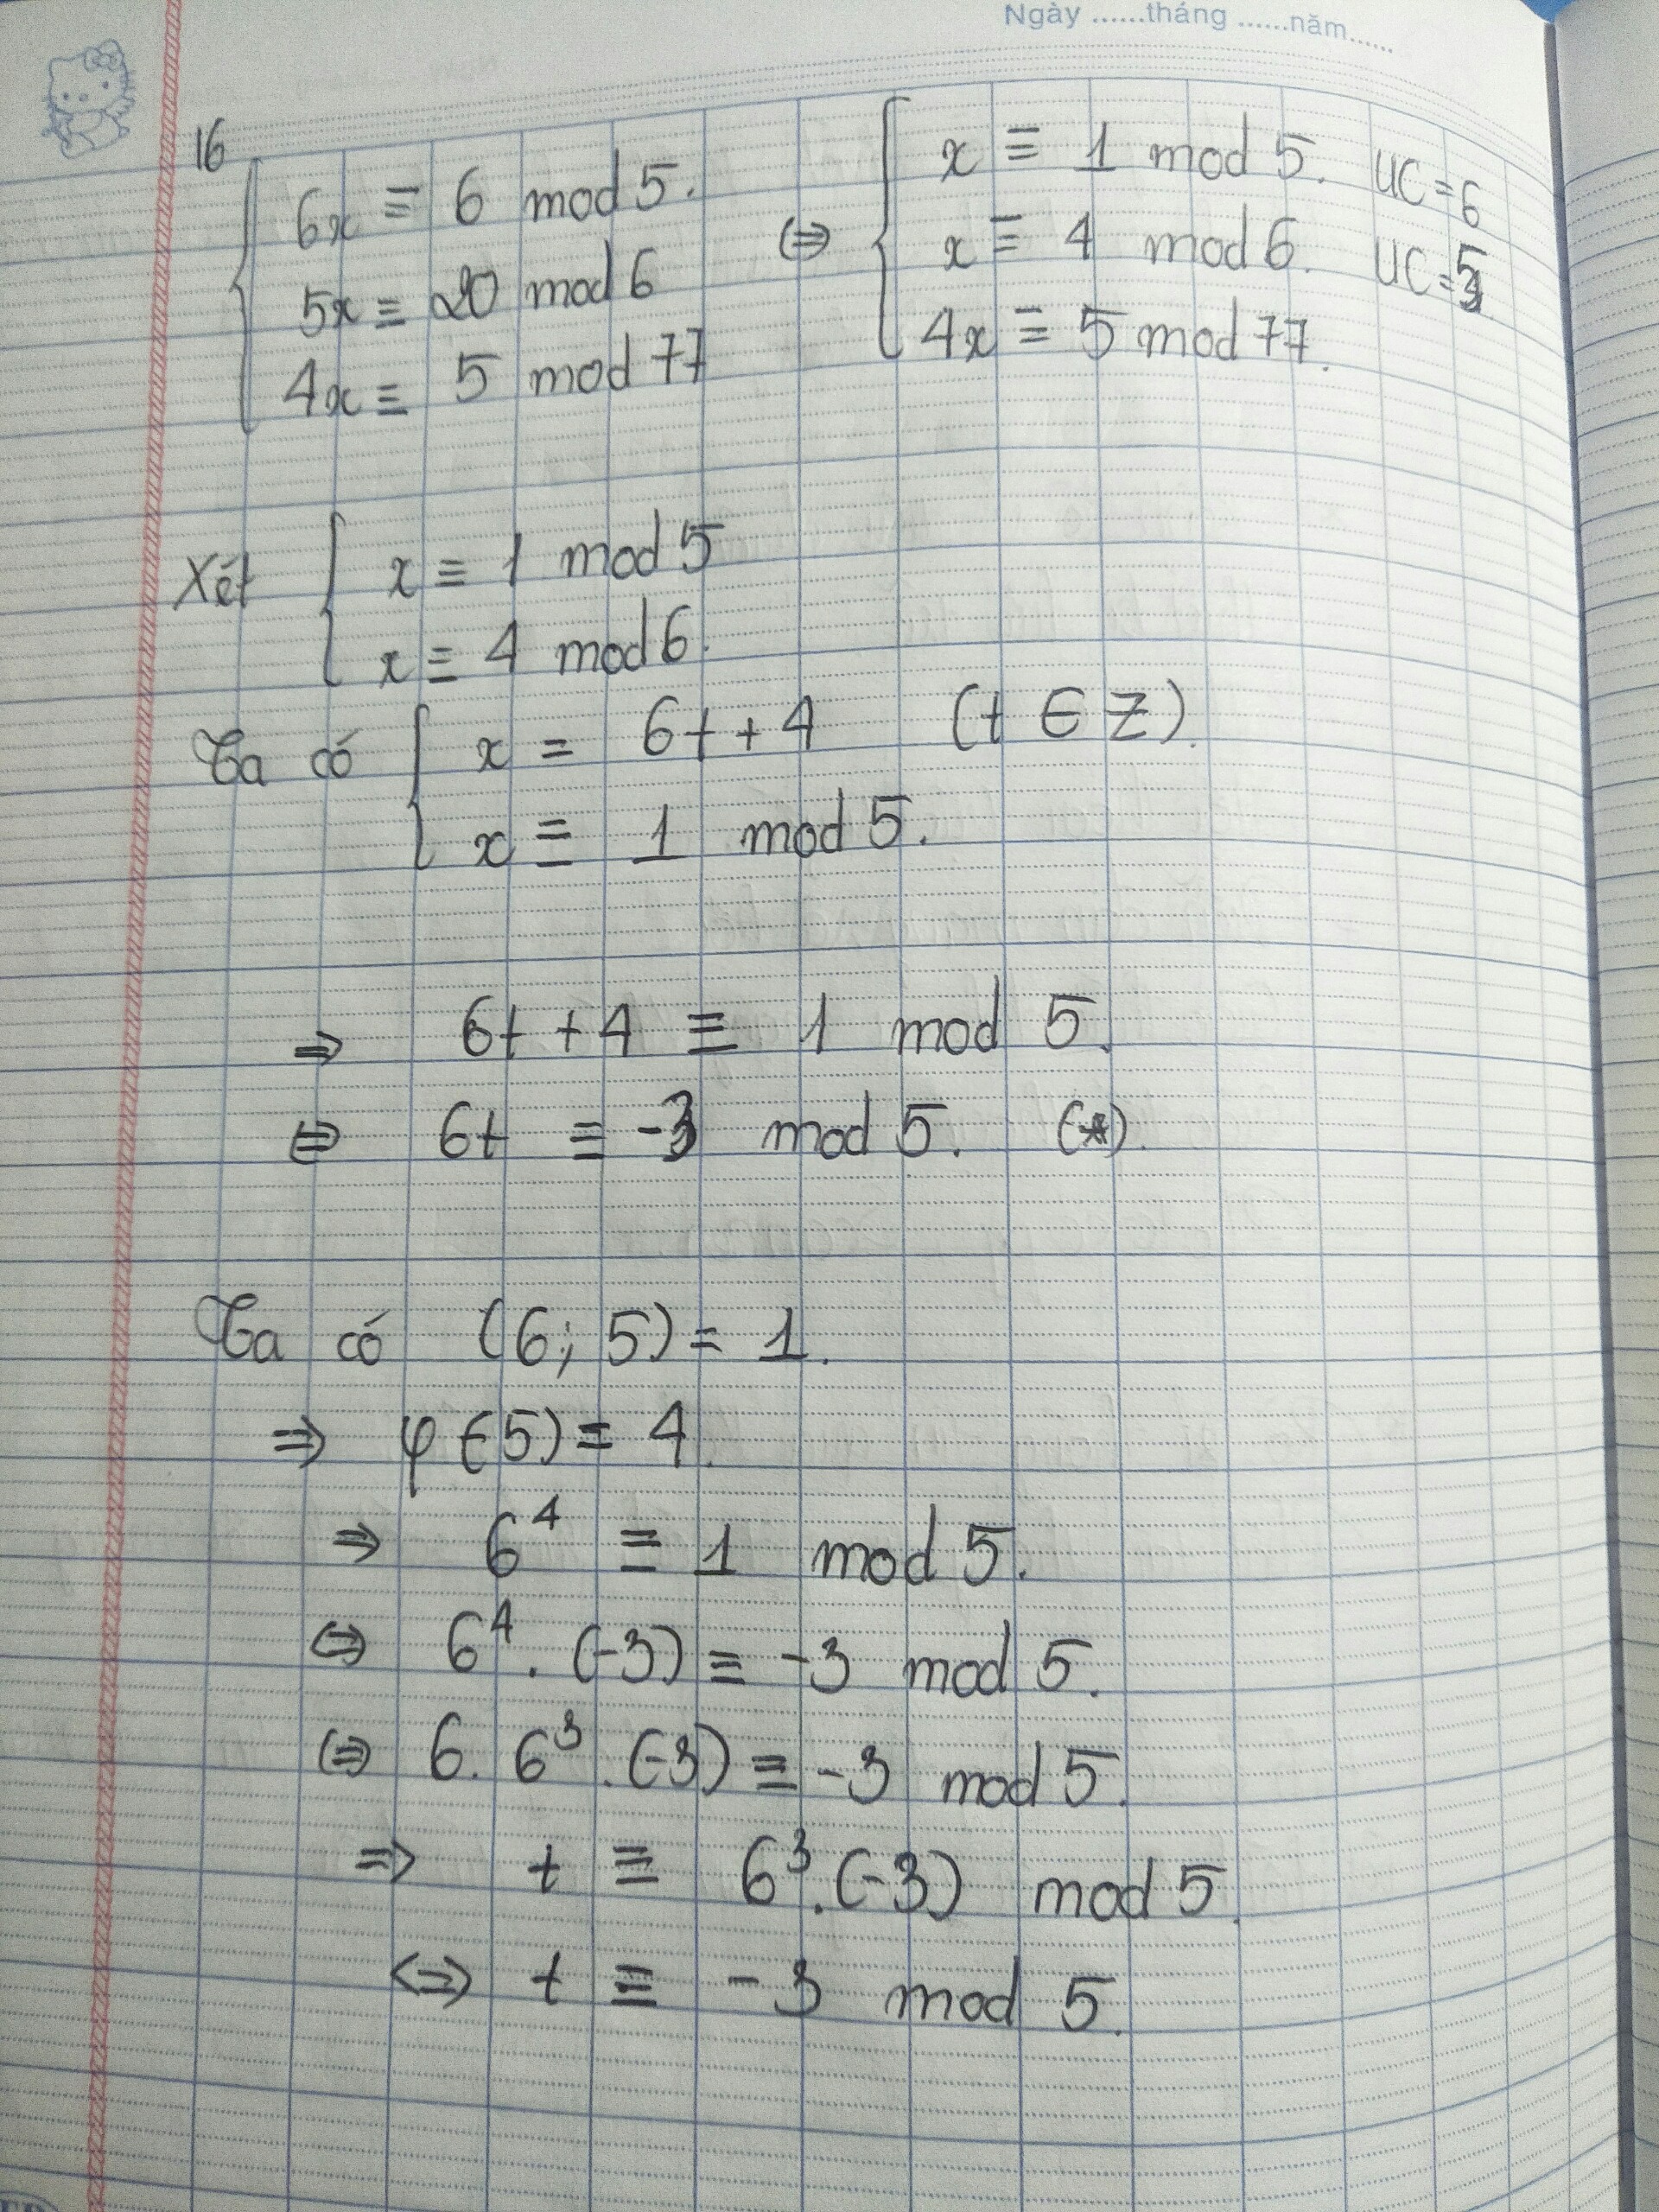 Ngày ......tháng ......năm......
16
{ 6x ≡ 6 mod 5. ⇔ { x ≡ 1 mod 5. UC = 6
5x ≡ 20 mod 6 x ≡ 4 mod 6. UC = 5
4x ≡ 5 mod 77 4x ≡ 5 mod 77.
Xét { x ≡ 1 mod 5
x ≡ 4 mod 6.
Ta có { x = 6t + 4 (t ∈ Z).
x ≡ 1 mod 5.
⇒ 6t + 4 ≡ 1 mod 5.
⇔ 6t ≡ -3 mod 5. (*).
Ta có (6; 5) = 1.
⇒ φ(5) = 4.
⇒ 6⁴ ≡ 1 mod 5.
⇔ 6⁴ . (-3) ≡ -3 mod 5.
⇔ 6. 6³ . (-3) ≡ -3 mod 5.
⇒ t ≡ 6³.(-3) mod 5.
⇔ t ≡ -3 mod 5.